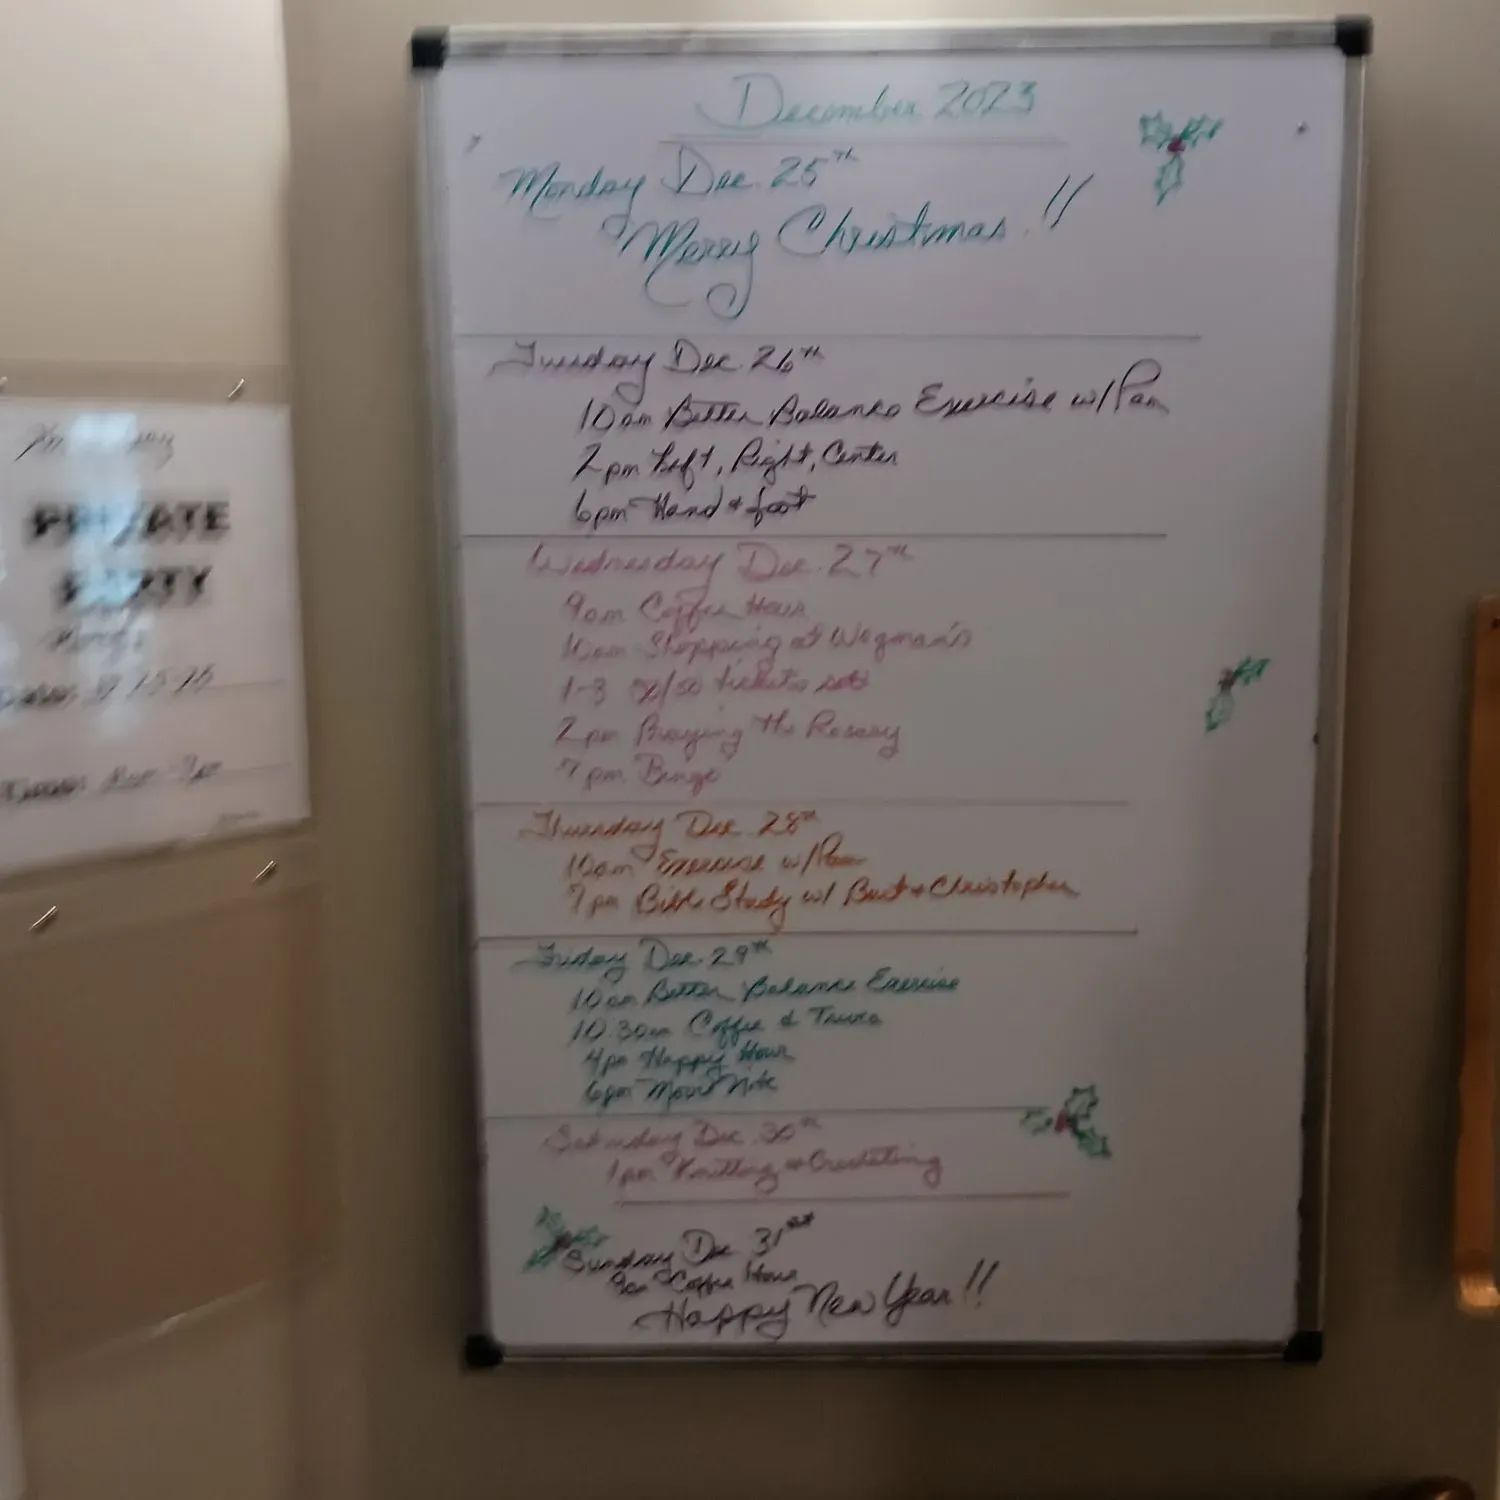 December 2023
Monday Dec. 25th
Merry Christmas!!
Tuesday Dec. 26th
10am Better Balance Exercise w/Pam
2pm Left, Right, Center
6pm Hand & foot
Wednesday Dec. 27th
9am Coffee Hour
10am Shopping at Wegman's
1-3 50/50 tickets
2pm Praying the Rosary
7pm Bingo
Thursday Dec. 28th
10am Exercise w/Pam
7pm Bible Study w/ & Christopher
Friday Dec. 29th
10am Better Balance Exercise
10:30am Coffee &
4pm Happy Hour
6pm Movie Nite
Saturday Dec. 30th
1pm Knitting & Crocheting
Sunday Dec 31st
9am Coffee Hour
Happy New Year!!
PRIVATE
PARTY